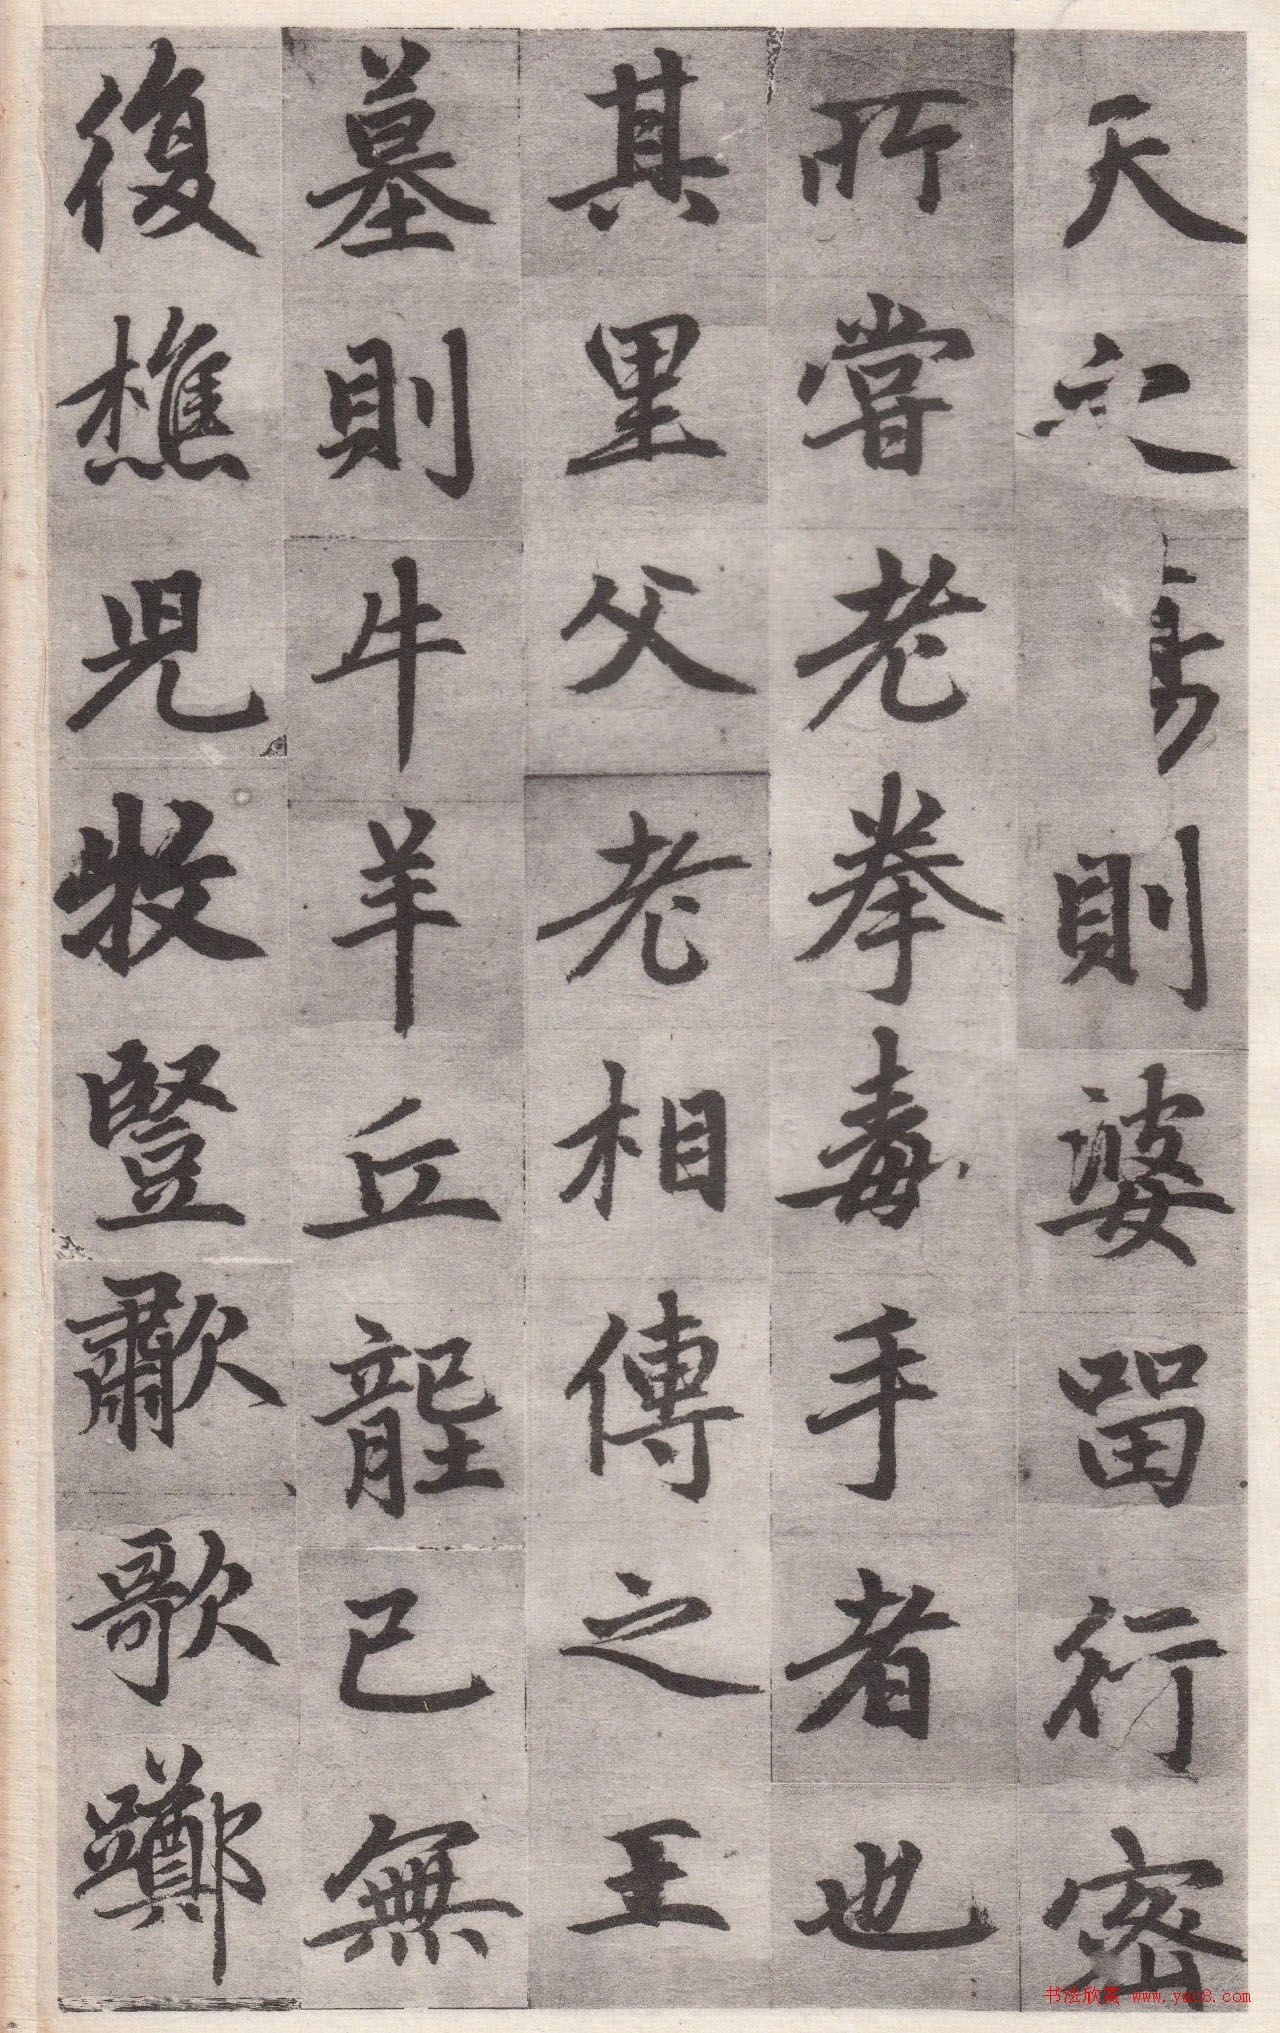 天之
則婆留行密
所嘗老拳毒手者也
其里父老相傳之王
墓則牛羊丘壟已無
復樵兒牧豎歗歌躑
书法欣赏 www.yac8.com